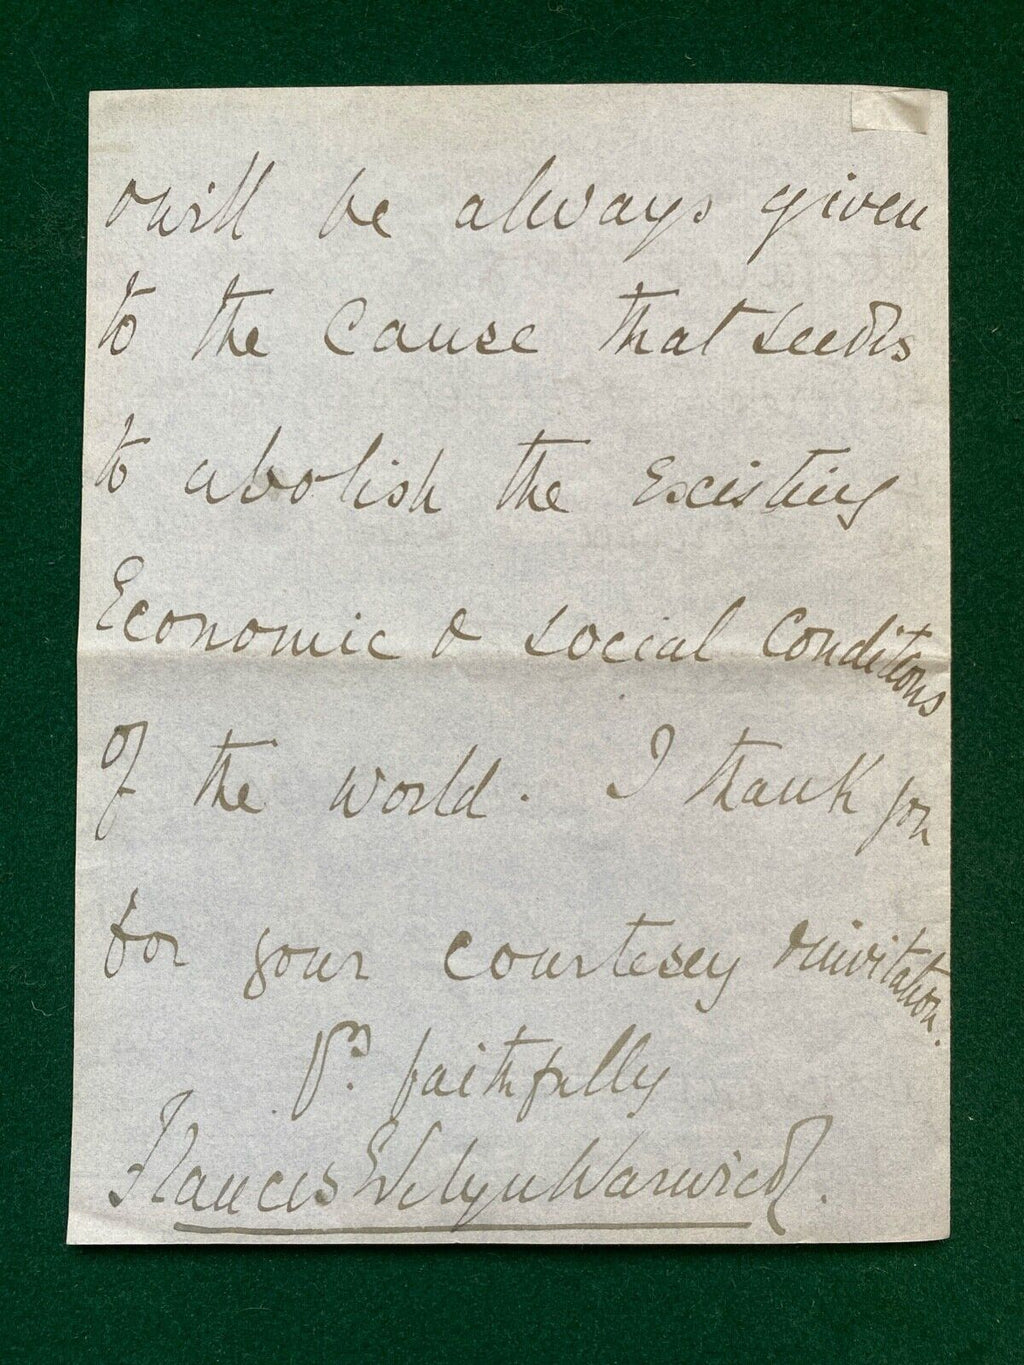 & will be always given
to the Cause that seeks
to abolish the Existing
Economic & social Conditions
of the world. I thank you
for your courtesey & invitation.
Yrs. faithfully
Frances Evelyn Warwick.